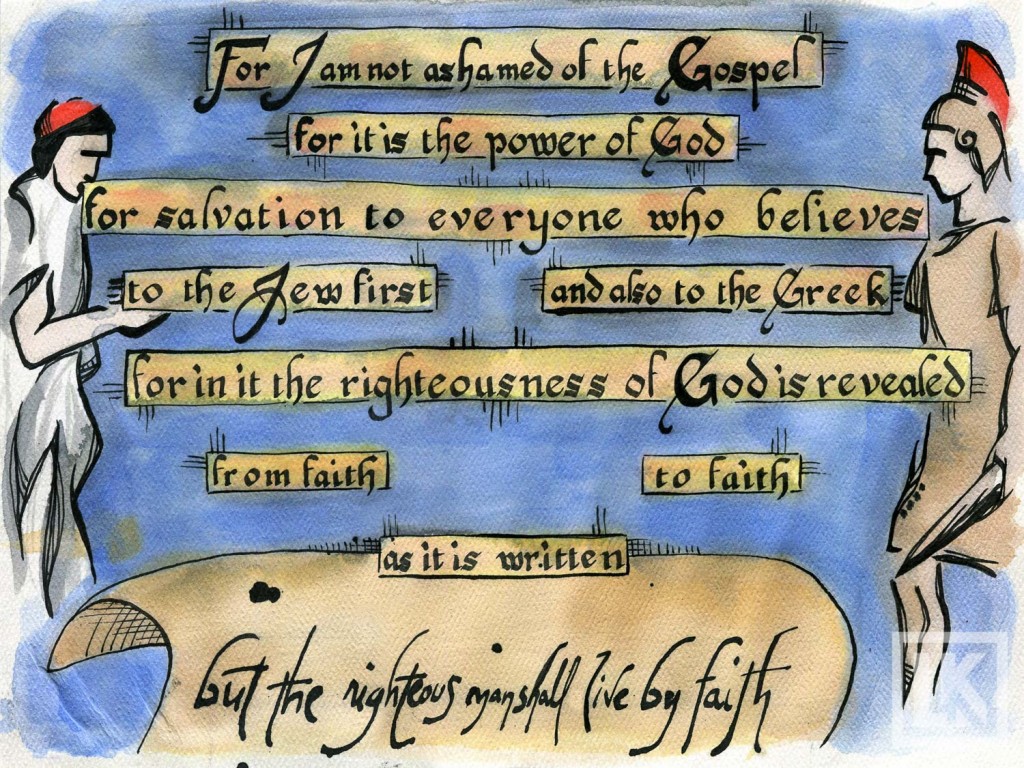 For I am not ashamed of the Gospel
for it is the power of God
for salvation to everyone who believes
to the Jew first and also to the Greek
for in it the righteousness of God is revealed
from faith to faith
as it is written
but the righteous man shall live by faith
LK